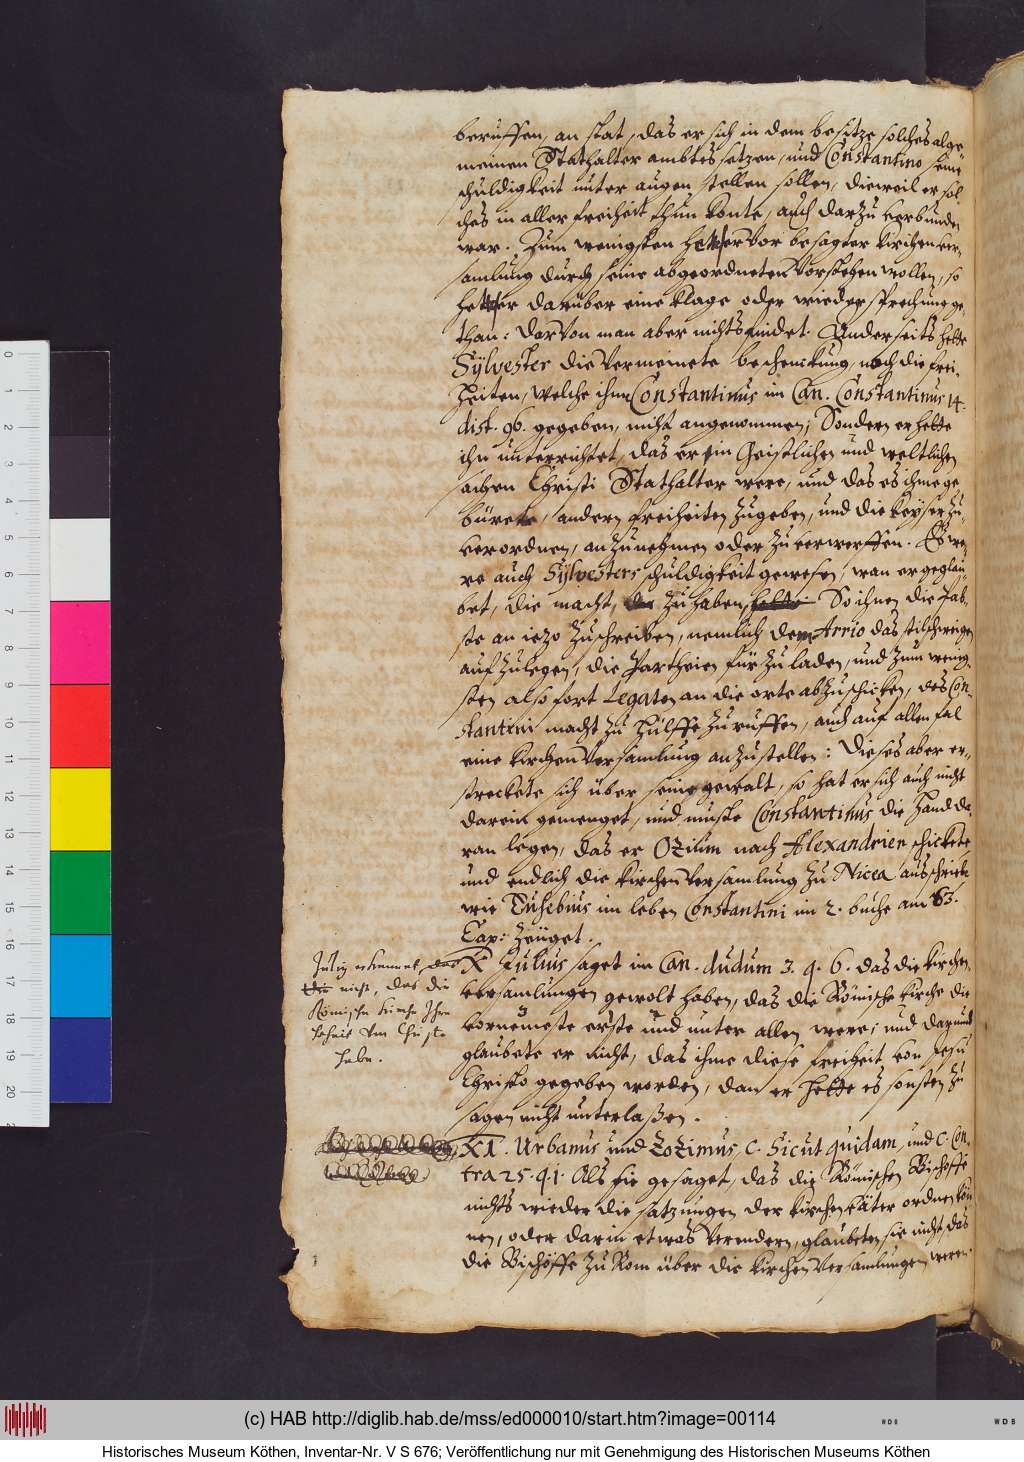 beruffen, an stat, das er sich in dem besitze solches alge-
meinen Stathalter ambtes setzen, und Constantino seine
schuldigkeit unter augen stellen sollen, dieweil er sol-
ches in aller freiheit thun konte, auch darzu verbunden
war. Zum wenigsten hette er vor besagter kirchen ver-
samlung durch seine abgeordneten vorstehen wollen, so
hette er darüber eine klage oder wiedersprechung ge-
than: darvon man aber nichts findet. Anderseits hette
Sÿlvester die vermeinete beschenckung, noch die frei-
heiten, welche ihm Constantinus im Can. Constantinus 14.
dist. 96. gegeben, nicht angenommen; Sondern er hette
ihn unterrichtet, das er in Geistlichen und weltlichen
sachen Christi Stathalter were, und das es ihme ge
bürete, andern freiheiten zugeben, und die keyser zu-
verordnen, anzunehmen oder zu verwerffen. Es we-
re auch Sÿlvesters schuldigkeit gewesen, wan er geglau-
bet, die macht, zu haben, hette. So ihnen die Päb-
ste an iezo zuschreiben, nemlich dem Arrio das stilschweigen
auf zulegen, die Partheien für zu laden, und zum wenig-
sten also fort Legaten an die orte abzuschicken, des Con-
stantini macht zu hülffe zu ruffen, auch auf allen fal
eine kirchen versamlung anzustellen: Dieses aber er-
streckete sich über seine gewalt, so hat er sich auch nicht
darein gemenget, und muste Constantinus die hand da-
ran legen, das er Ozium nach Alexandrien schickete
und endlich die kirchen versamlung zu Nicea ausschriebe
wie Eusebius im leben Constantini im 2. buche am 63.
Cap: zeüget.
Julig erkennet, das
die nicht, das die
Römische kirche Ihre
hoheit von Christo
habe.
X Julius saget im Can. dudum 3. q. 6. das die kirchen-
versamlungen gewolt haben, das die Römische kirche die
vornemeste erste und unter allen were; und darumb
glaubete er nicht, das ihme diese freiheit von Jesu
Christo gegeben worden, dan er hette es sonsten zu
sagen nicht unterlaßen.
XI. Urbanus und Zozimus, C. Sicut quidam, und C. Con-
tra 25. q. 1. Als sie gesaget, das die Römischen Bischoffe
nichts wieder die satzungen der kirchen väter ordnen kön-
nen, oder darin etwas verendern, glaubeten sie nicht, das
die Bischöffe zu Rom über die kirchen versamlungen weren.
(c) HAB http://diglib.hab.de/mss/ed000010/start.htm?image=00114
WDB
WDB
Historisches Museum Köthen, Inventar-Nr. V S 676; Veröffentlichung nur mit Genehmigung des Historischen Museums Köthen
0
1
2
3
4
5
6
7
8
9
10
11
12
13
14
15
16
17
18
19
20